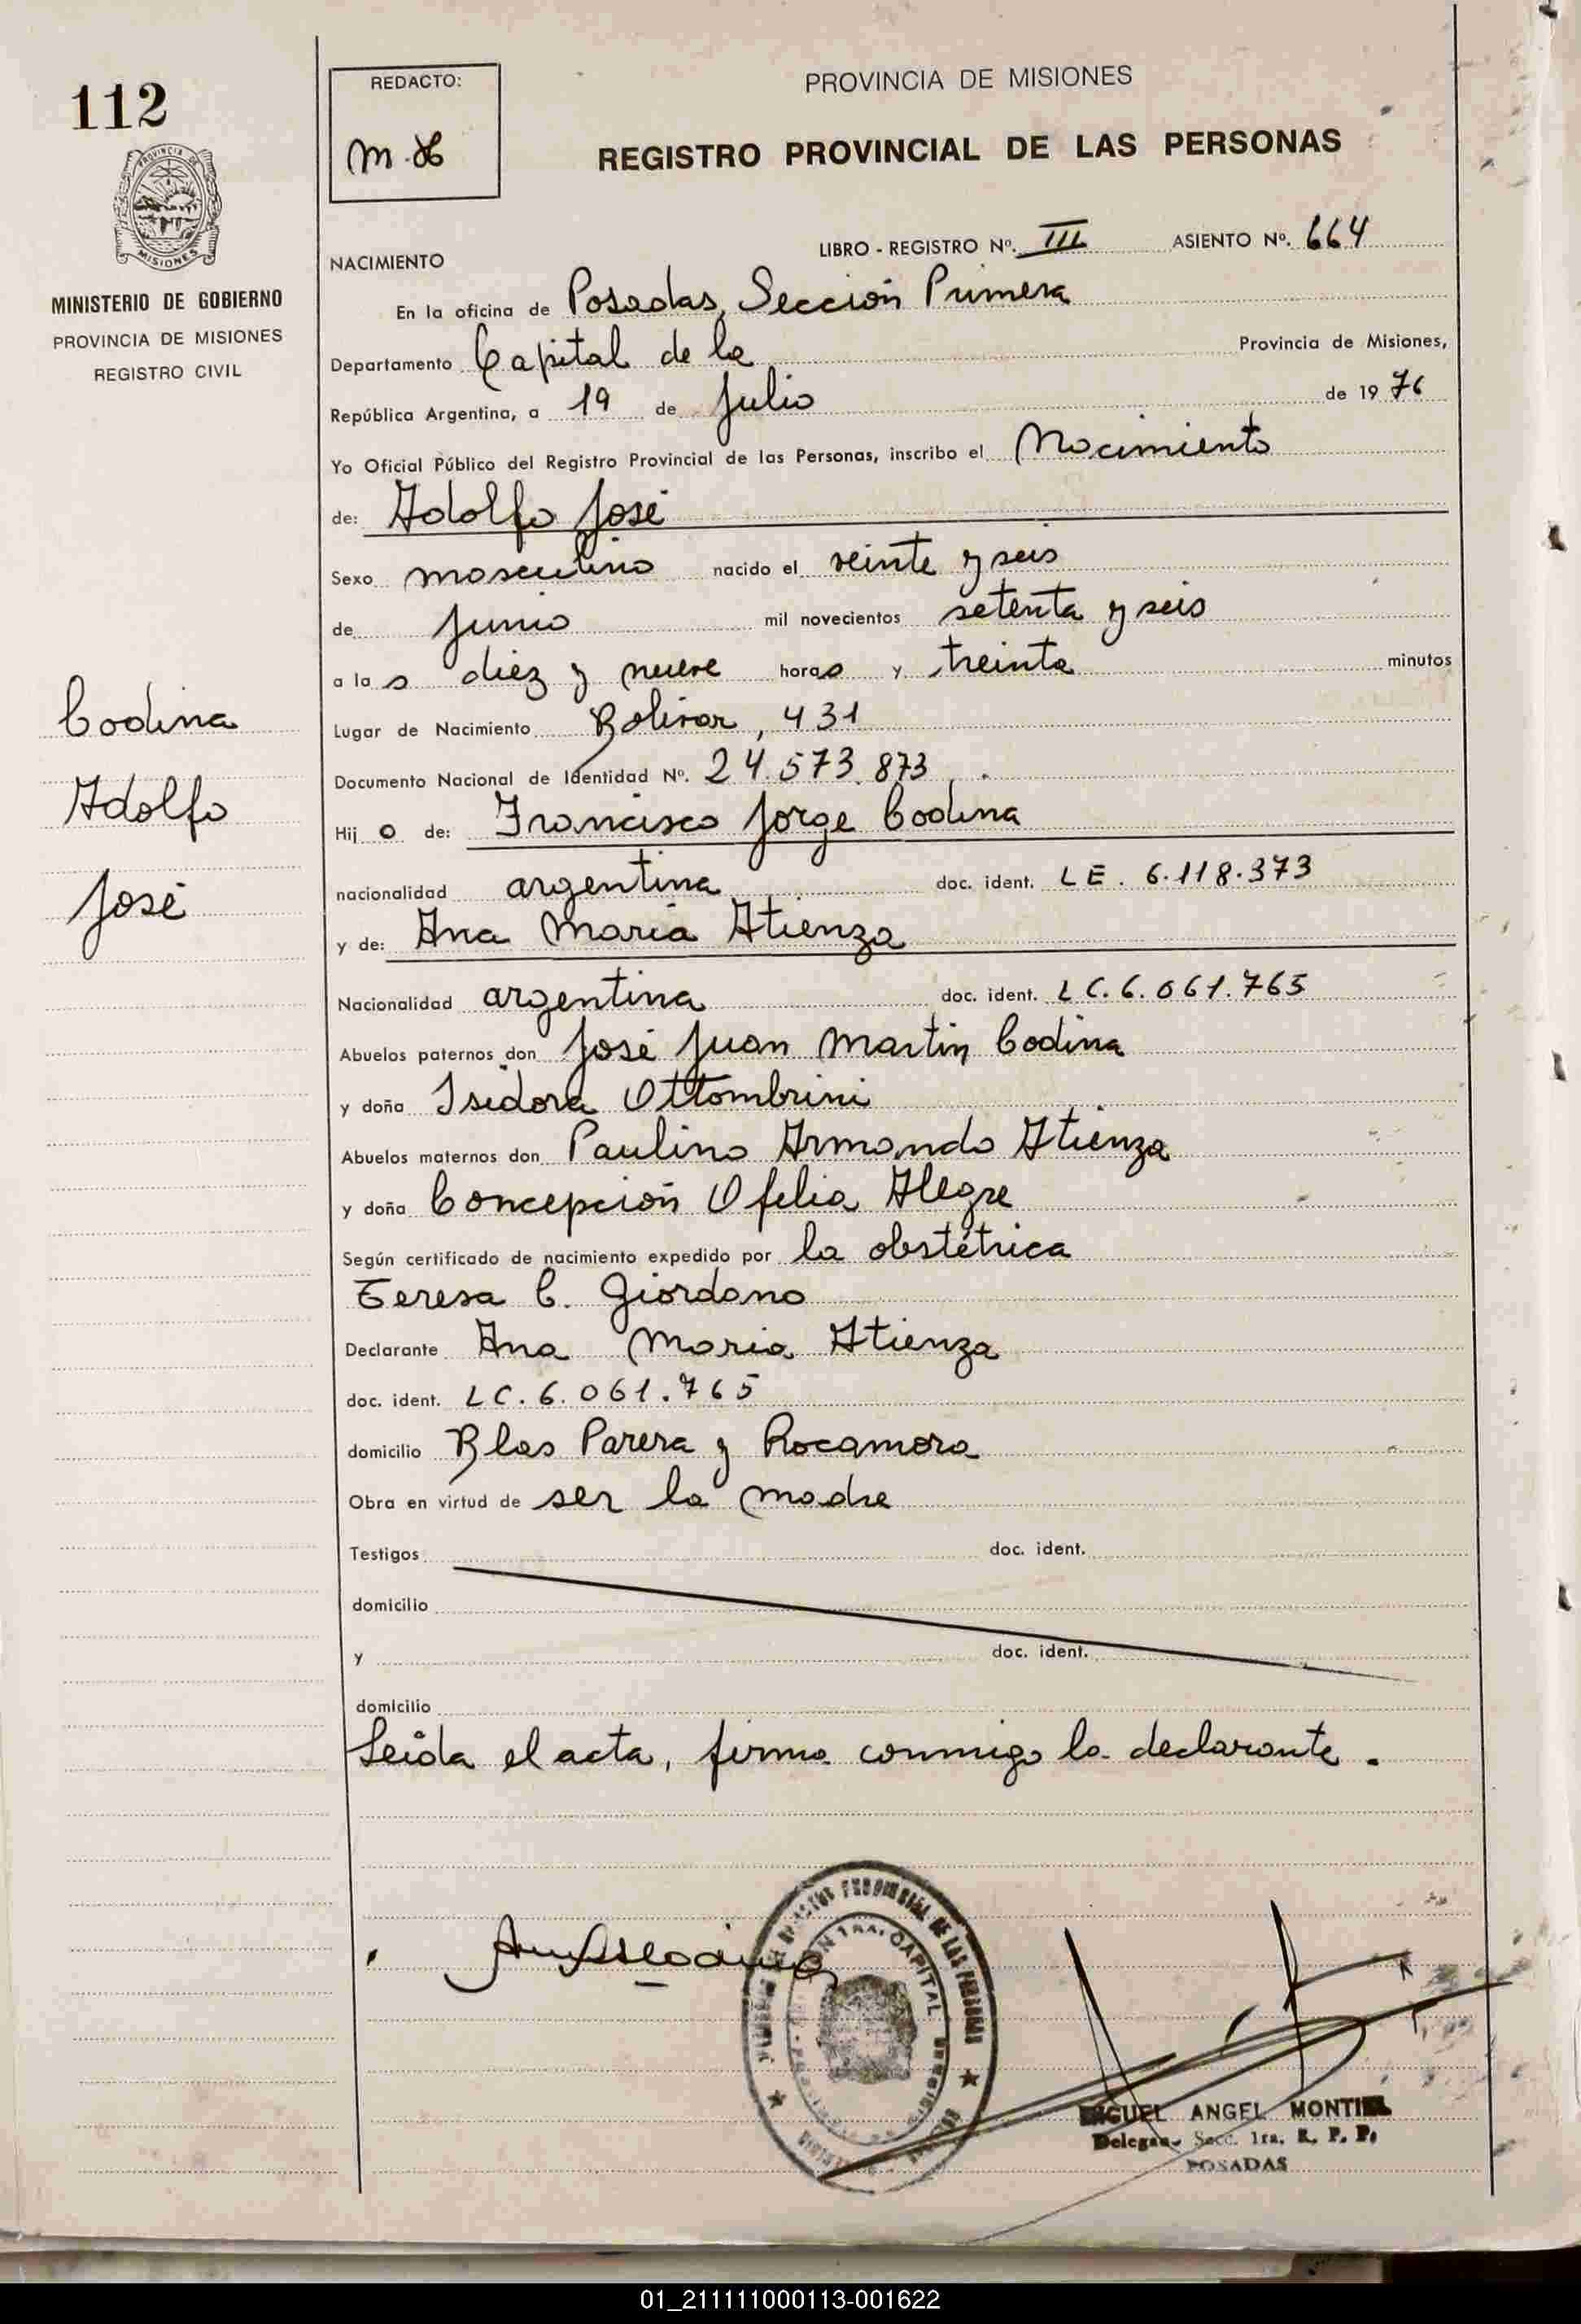 112
PROVINCIA DE
MISIONES
MINISTERIO DE GOBIERNO
PROVINCIA DE MISIONES
REGISTRO CIVIL
Codina
Adolfo
José
REDACTO:
PROVINCIA DE MISIONES
REGISTRO PROVINCIAL DE LAS PERSONAS
NACIMIENTO LIBRO - REGISTRO Nº. III ASIENTO Nº. 664
En la oficina de Posadas, Sección Primera
Departamento Capital de la Provincia de Misiones,
República Argentina, a 19 de Julio de 19 76
Yo Oficial Público del Registro Provincial de las Personas, inscribo el Nacimiento
de: Adolfo José
Sexo masculino nacido el veinte y seis
de Junio mil novecientos setenta y seis
a la s diez y nueve horas y treinta minutos
Lugar de Nacimiento Bolivar, 431
Documento Nacional de Identidad Nº. 24.573.873
Hij o de: Francisco Jorge Codina
nacionalidad argentina doc. ident. LE. 6.118.373
y de: Ana María Atienza
Nacionalidad argentina doc. ident. LC. 6.061.765
Abuelos paternos don José Juan Martin Codina
y doña Isidora Ottombrini
Abuelos maternos don Paulino Armando Atienza
y doña Concepción Ofelia Alegre
Según certificado de nacimiento expedido por la obstétrica
Teresa C. Giordano
Declarante Ana Maria Atienza
doc. ident. LC. 6.061.765
domicilio Blas Parera y Rocamora
Obra en virtud de ser la madre
Testigos doc. ident.
domicilio
y doc. ident.
domicilio
Leida el acta, firma conmigo la declarante.
CAPITAL
MIGUEL ANGEL MONTIEL
Secc. 1ra. R. P. P.
POSADAS
01_211111000113-001622